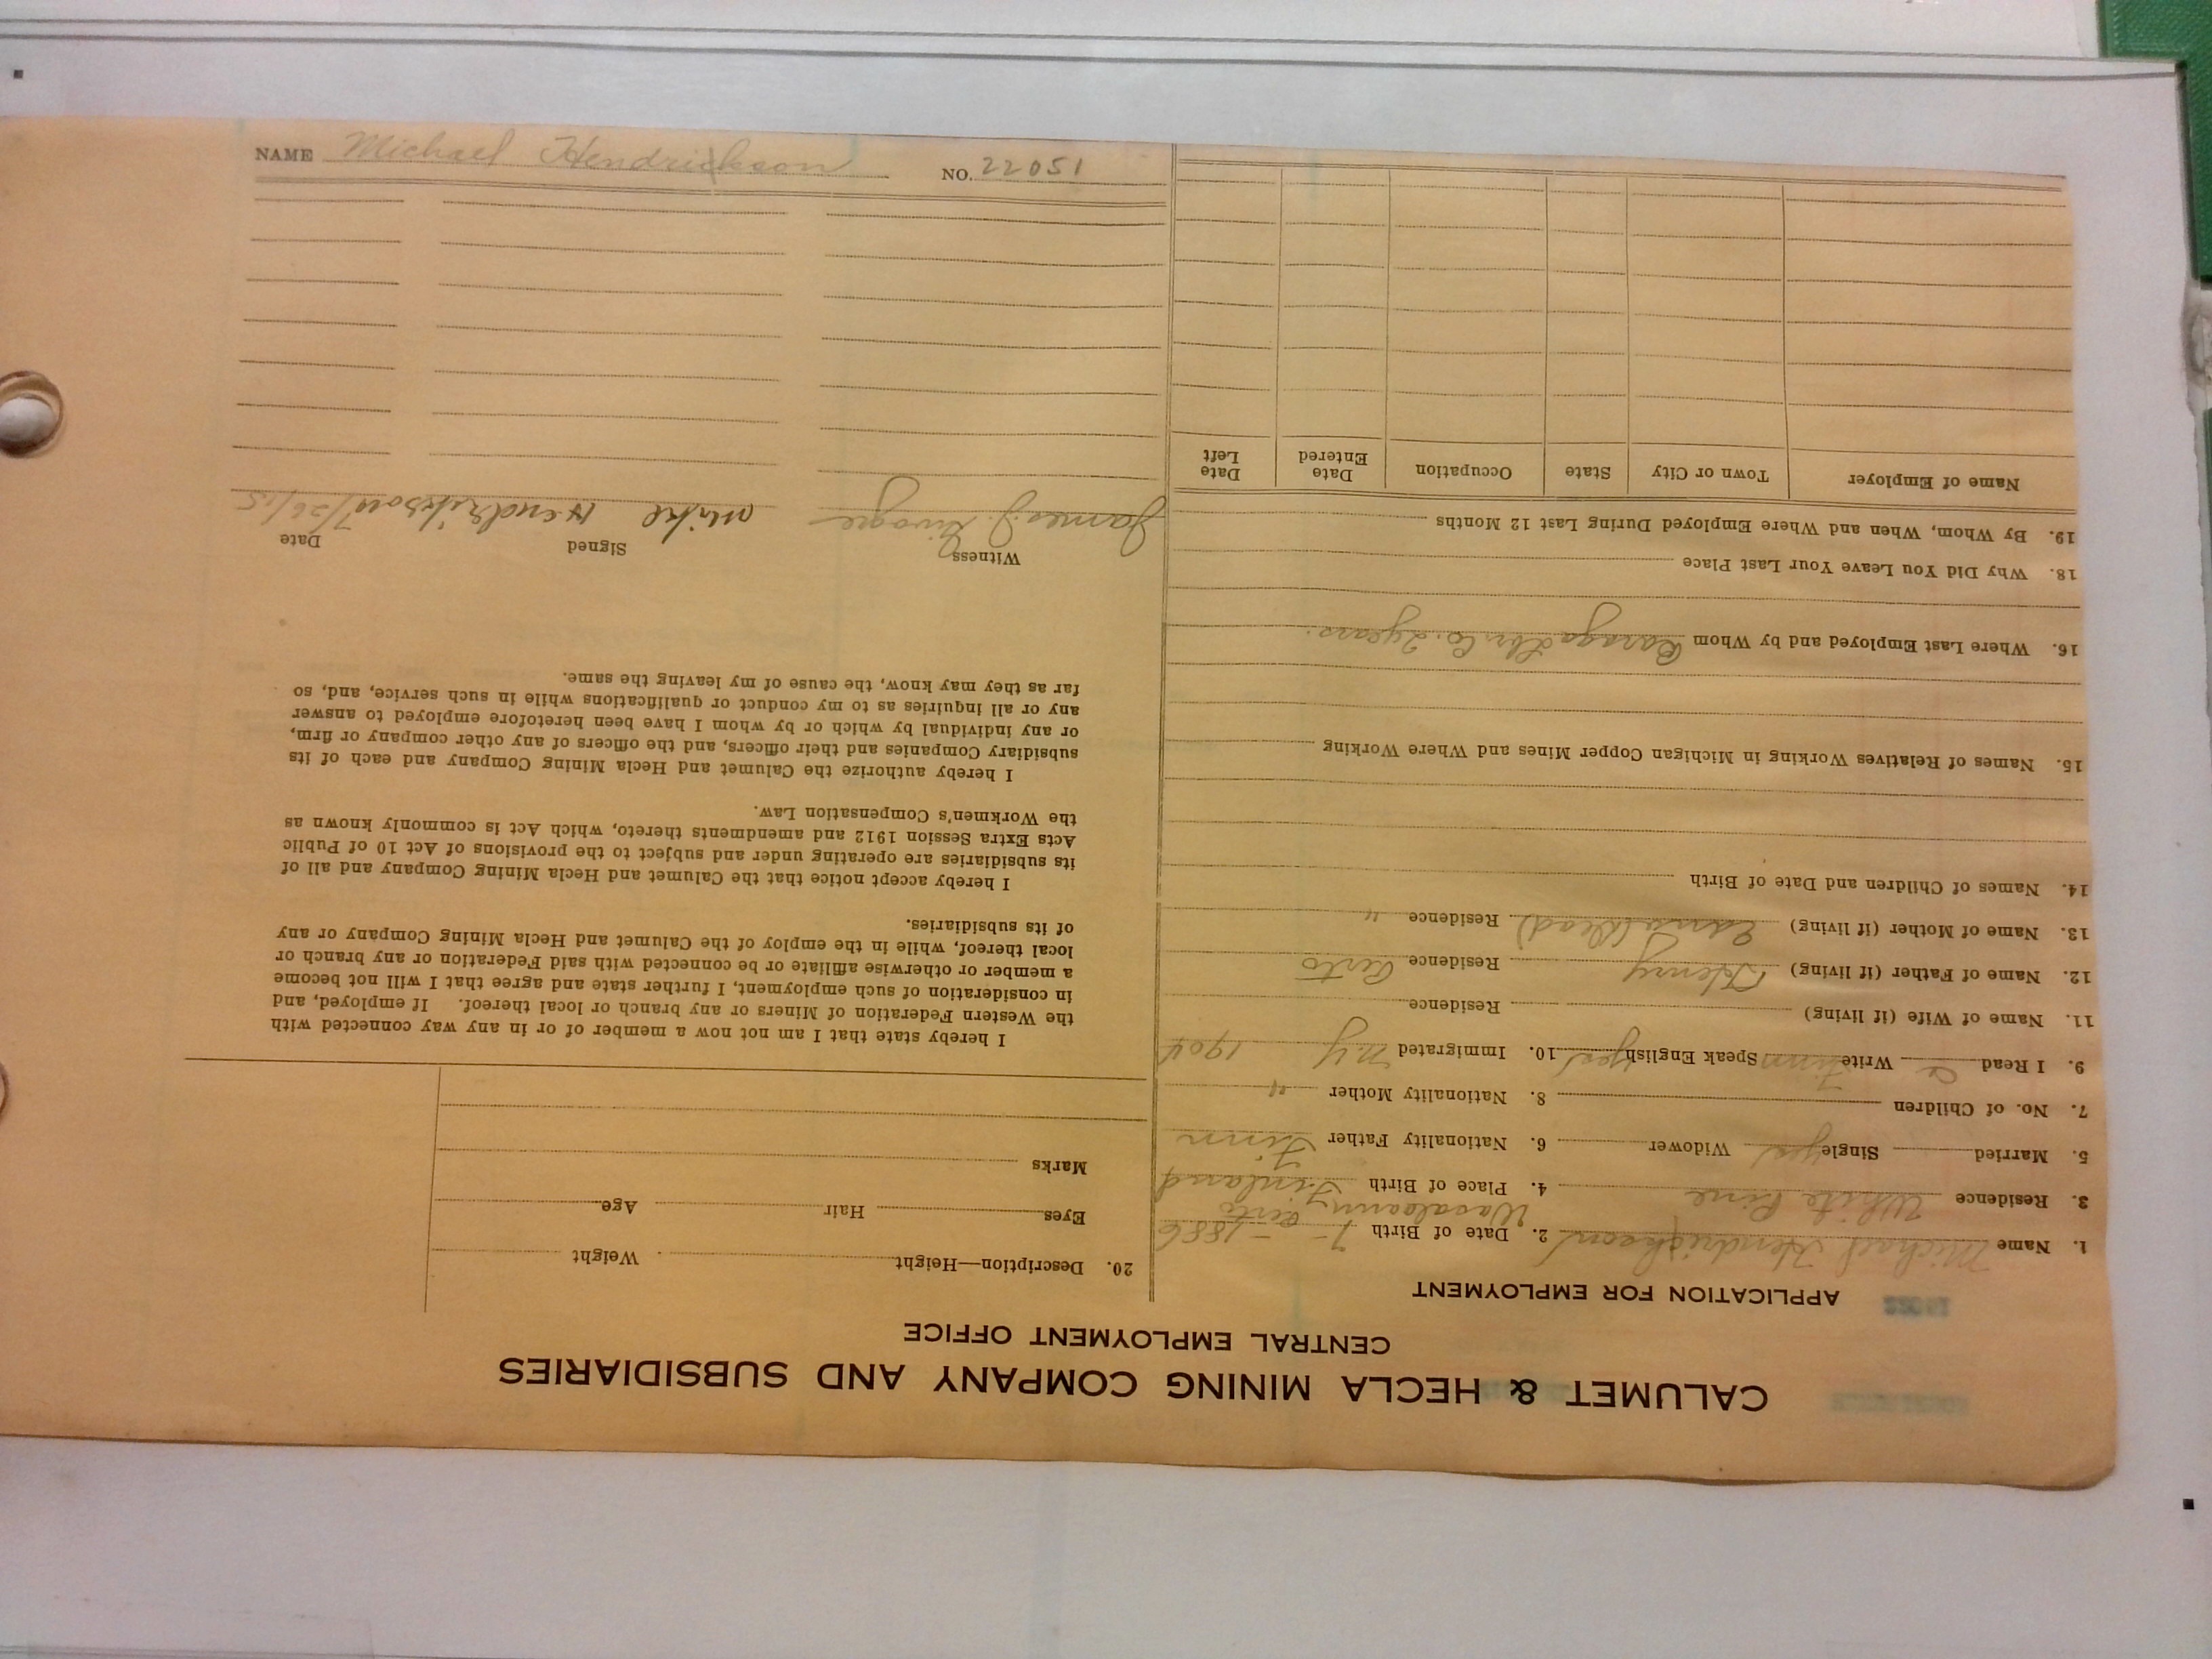 CALUMET & HECLA MINING COMPANY AND SUBSIDIARIES
CENTRAL EMPLOYMENT OFFICE
APPLICATION FOR EMPLOYMENT
1. Name Michael Hendrickson 2. Date of Birth 7- -1886
3. Residence White Pine 4. Place of Birth Finland
5. Married Single yes Widower 6. Nationality Father Finn
7. No. of Children 8. Nationality Mother "
9. I Read Write Finn Speak English yes 10. Immigrated N.Y 1904
11. Name of Wife (if living) Residence
12. Name of Father (if living) Henry Residence
13. Name of Mother (if living) (Dead) Residence "
14. Names of Children and Date of Birth
15. Names of Relatives Working in Michigan Copper Mines and Where Working
16. Where Last Employed and by Whom Baraga Lbr. Co. 2 years.
18. Why Did You Leave Your Last Place
19. By Whom, When and Where Employed During Last 12 Months
Name of Employer Town or City State Occupation Date Entered Date Left
20. Description—Height Weight
Eyes Hair Age
Marks
I hereby state that I am not now a member of or in any way connected with
the Western Federation of Miners or any branch or local thereof. If employed, and
in consideration of such employment, I further state and agree that I will not become
a member or otherwise affiliate or be connected with said Federation or any branch or
local thereof, while in the employ of the Calumet and Hecla Mining Company or any
of its subsidiaries.
I hereby accept notice that the Calumet and Hecla Mining Company and all of
its subsidiaries are operating under and subject to the provisions of Act 10 of Public
Acts Extra Session 1912 and amendments thereto, which Act is commonly known as
the Workmen's Compensation Law.
I hereby authorize the Calumet and Hecla Mining Company and each of its
subsidiary Companies and their officers, and the officers of any other company or firm,
or any individual by which or by whom I have been heretofore employed to answer
any or all inquiries as to my conduct or qualifications while in such service, and, so
far as they may know, the cause of my leaving the same.
Witness Signed Date
James J. Mike Hendrikson 7/26/15
NAME Michael Hendrickson NO. 22051